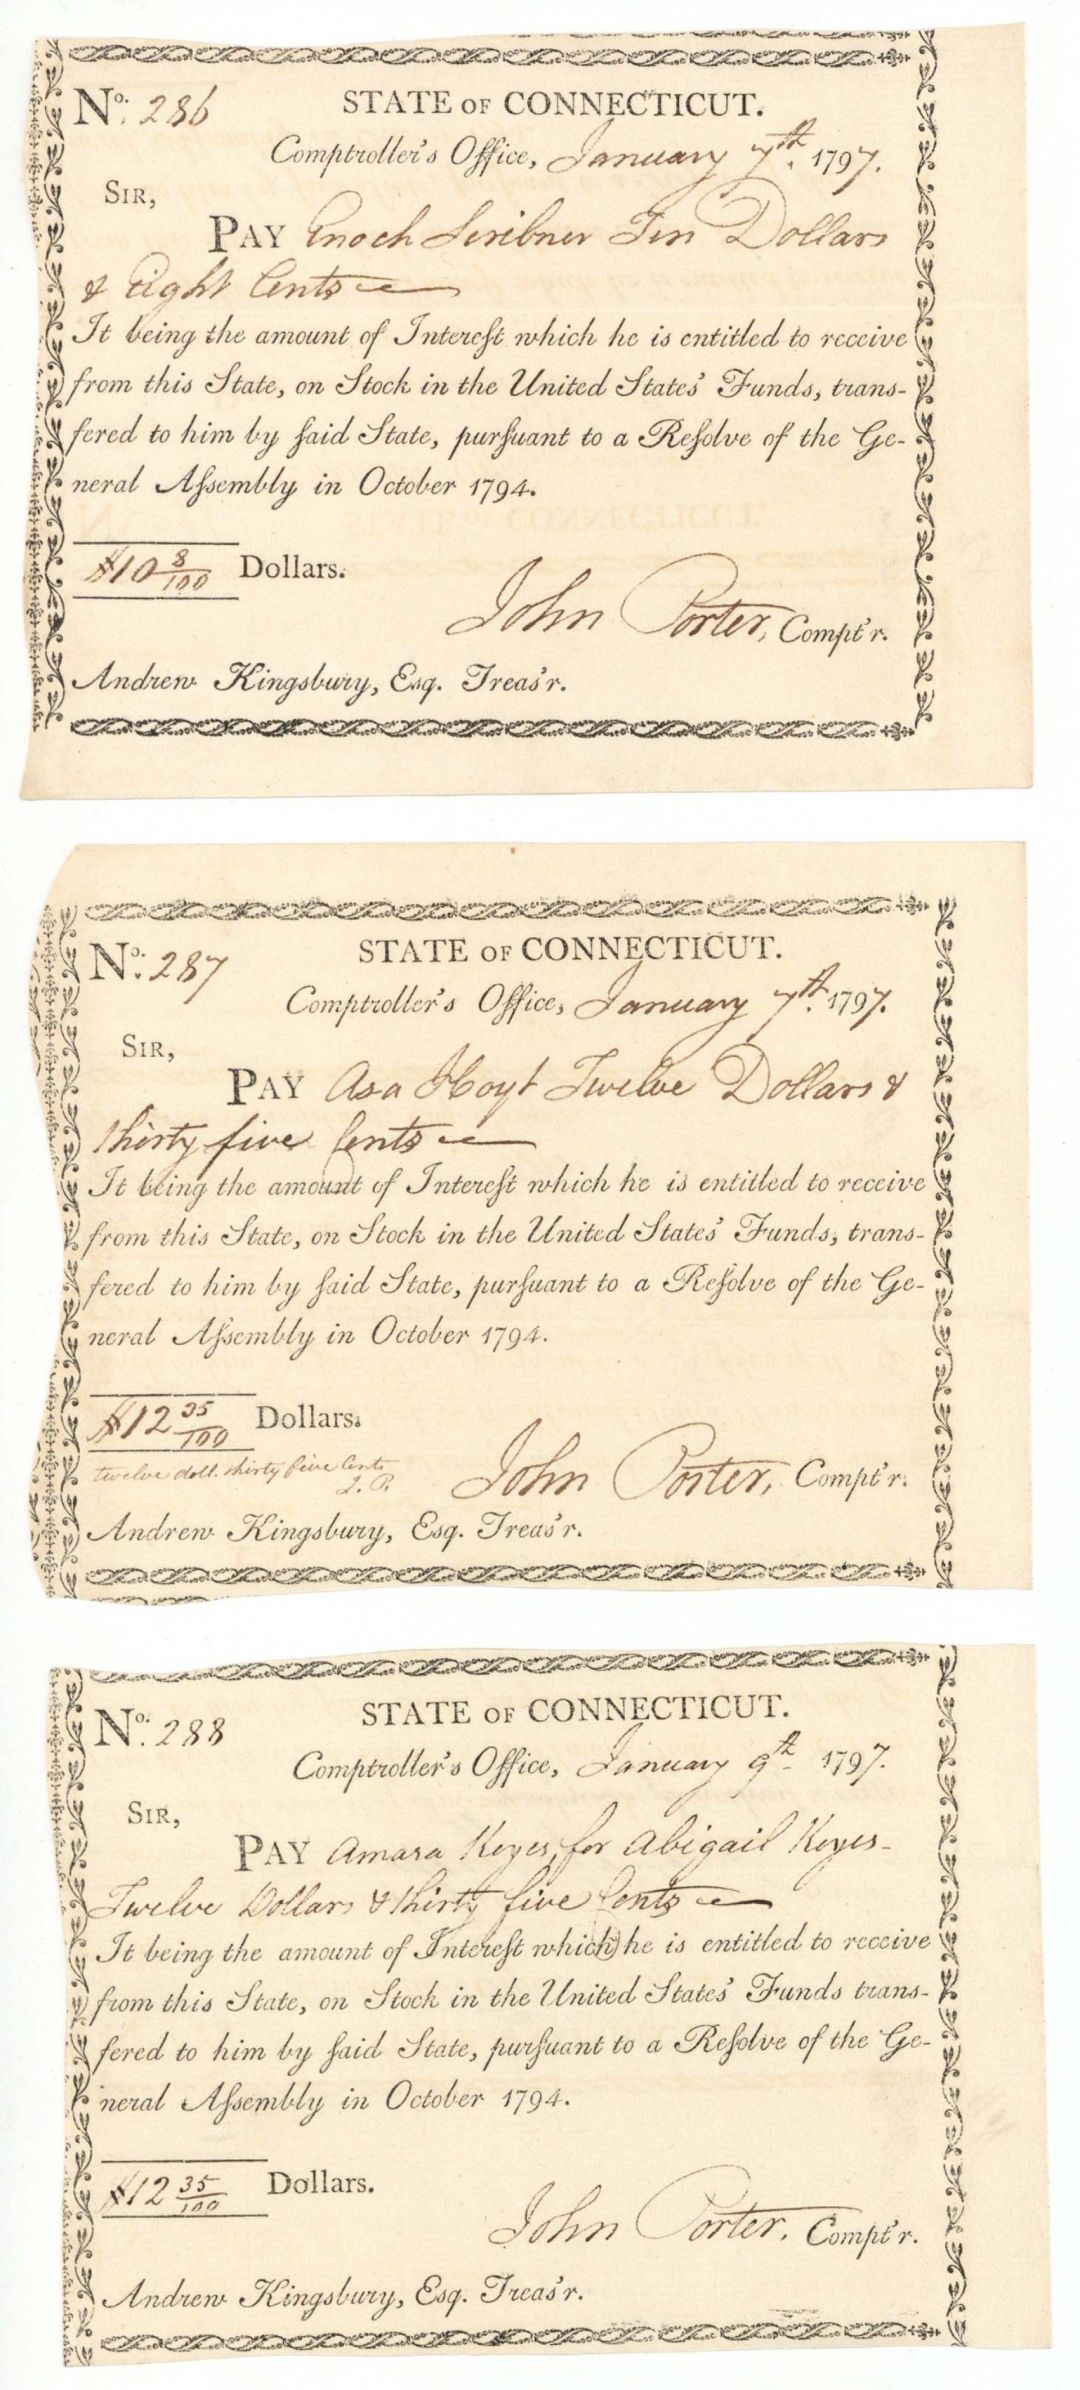 No. 286 STATE OF CONNECTICUT.
Comptroller's Office, January 7th. 1797.
SIR,
PAY Enoch Scribner Ten Dollars
& Eight Cents
It being the amount of Intereſt which he is entitled to receive
from this State, on Stock in the United States' Funds, trans-
fered to him by ſaid State, purſuant to a Reſolve of the Ge-
neral Aſsembly in October 1794.
$10 8/100 Dollars.
John Porter, Compt'r.
Andrew Kingsbury, Esq. Treas'r.
No. 287 STATE OF CONNECTICUT.
Comptroller's Office, January 7th. 1797.
SIR,
PAY Asa Hoyt Twelve Dollars &
thirty five Cents
It being the amount of Intereſt which he is entitled to receive
from this State, on Stock in the United States' Funds, trans-
fered to him by ſaid State, purſuant to a Reſolve of the Ge-
neral Aſsembly in October 1794.
$12 35/100 Dollars.
twelve doll. thirty five Cents
J. P.
John Porter, Compt'r.
Andrew Kingsbury, Esq. Treas'r.
No. 288 STATE OF CONNECTICUT.
Comptroller's Office, January 9th. 1797.
SIR,
PAY Amasa Keyes, for Abigail Keyes
Twelve Dollars & thirty five Cents
It being the amount of Intereſt which he is entitled to receive
from this State, on Stock in the United States' Funds trans-
fered to him by ſaid State, purſuant to a Reſolve of the Ge-
neral Aſsembly in October 1794.
$12 35/100 Dollars.
John Porter. Compt'r.
Andrew Kingsbury, Esq. Treas'r.